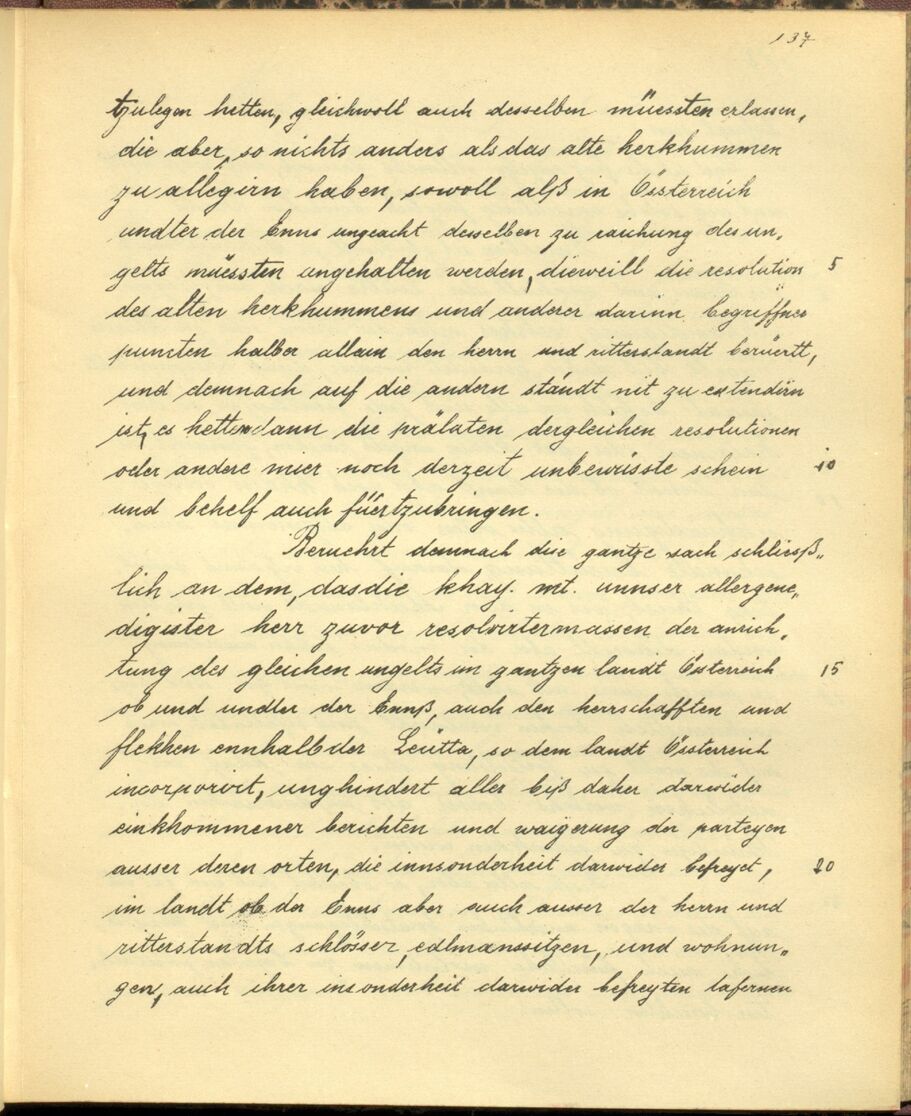 137
tzulegen hetten, gleichwoll auch desselben müessten erlassen,
die aber, so nichts anders als das alte herkhummen
zu allegirn haben, sowoll alß in Össterreich
undter der Enns ungeacht desselben zu raichung des un„
gelts müessten angehalten werden, dieweill die resolution 5
des alten herkhummens und anderer darinn begriffner
puncten halber allain den herrn und ritterstandt berüertt,
und demnach auf die andern ständt nit zu extendirn
ist, es hetten dann die prälaten dergleichen resolutionen
oder andere mier noch derzeit unbewüsste schein 10
und behelf auch füertzubringen.
Beruehrt demnach dise gantze sach schliesß„
lich an dem, das die khay. mt. unnser allergene„
digister herr zuvor resolvirtermassen der anrich„
tung des gleichen ungelts im gantzen landt Össterreich 15
ob und undter der Ennß, auch den herrschafften und
flekhen ennhalb der Leütta, so dem landt Össterreich
incorporirt, unghindert aller biß daher darwider
einkhommener berichten und waigerung der parteyen
ausser deren orten, die innsonderheit darwider befreyet, 20
im landt ob der Enns aber auch ausser der herrn und
ritterstandts schlösser, edlmanssitzen, und wohnun„
gen, auch ihrer insonderheit darwider befreyten tafernen